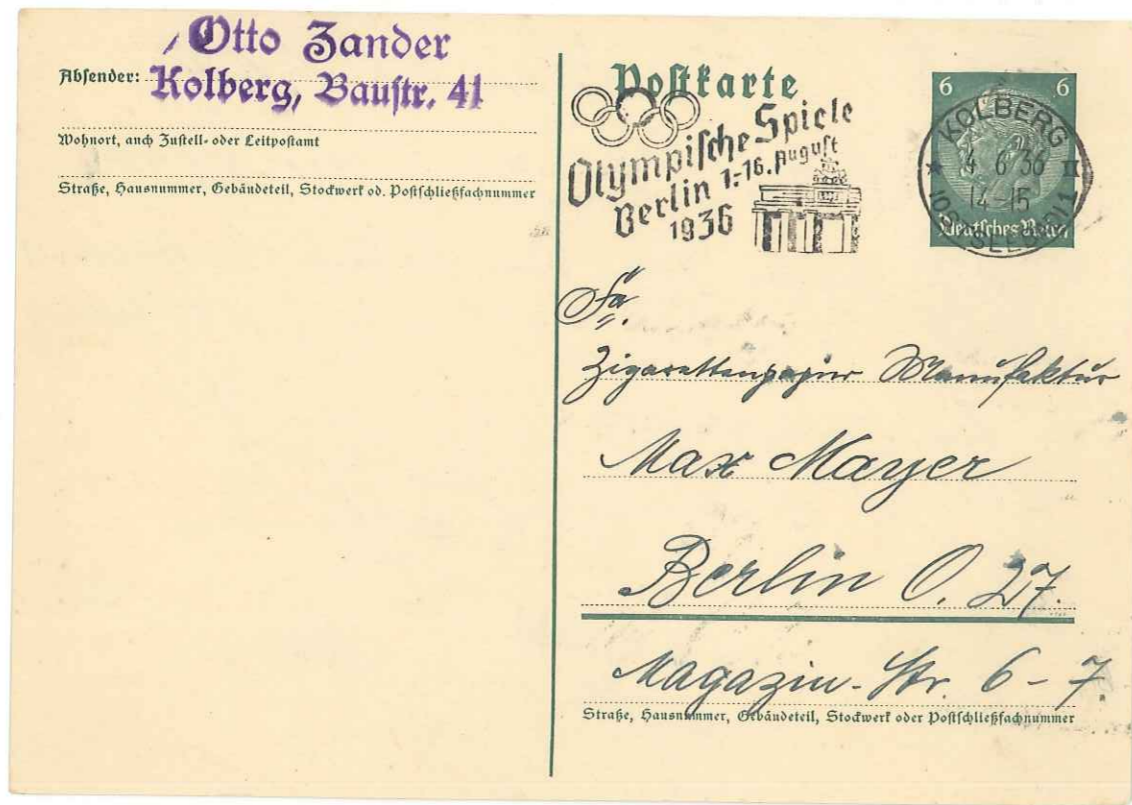 Otto Zander
Kolberg, Baustr. 41
Absender:
Wohnort, auch Zustell- oder Leitpostamt
Straße, Hausnummer, Gebäudeteil, Stockwerk od. Postschließfachnummer
Postkarte
Olympische Spiele
Berlin 1.-16. August
1936
6 6
KOLBERG
4 6 36 II
14-15
Deutsches Reich
Fa.
Zigarettenpapier Manufaktur
Max Mayer
Berlin O. 27.
Magazin-Str. 6-7.
Straße, Hausnummer, Gebäudeteil, Stockwerk oder Postschließfachnummer